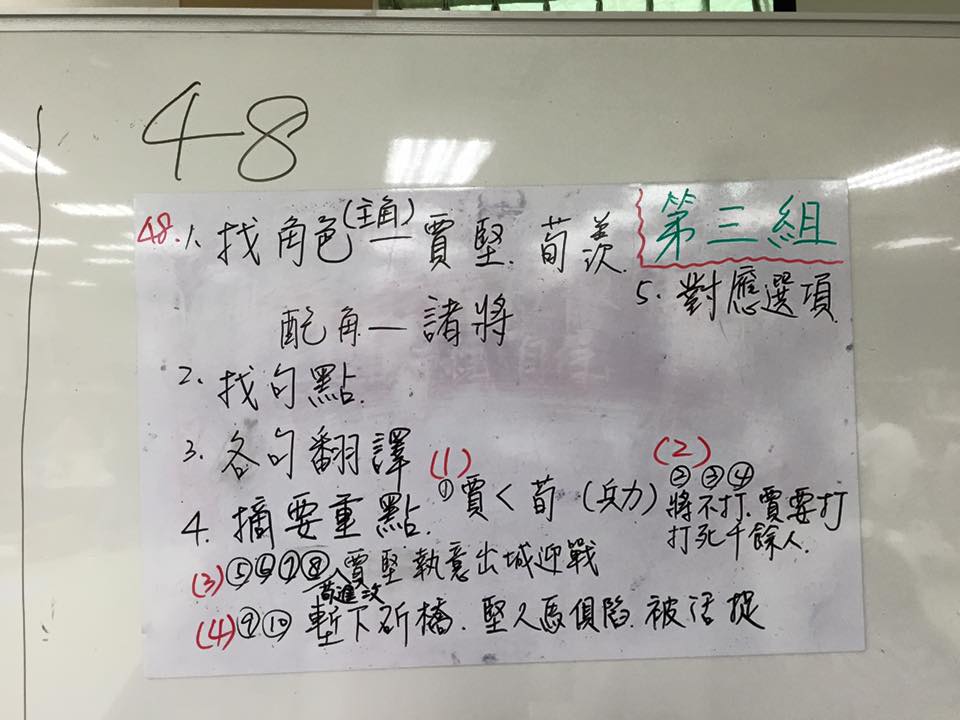 48
48.1、找角色(主角)—賈堅. 荀羨.
第三組
5. 對應選項
配角—諸將
2. 找句點.
3. 各句翻譯
4. 摘要重點.
(1)
①賈<荀(兵力)
(2)
②③④
將不打. 賈要打
打死千餘人.
(3)⑤⑥⑦⑧賈堅執意出城迎戰
荀進攻
(4)⑨⑩塹下斫橋. 堅人馬俱陷. 被活捉